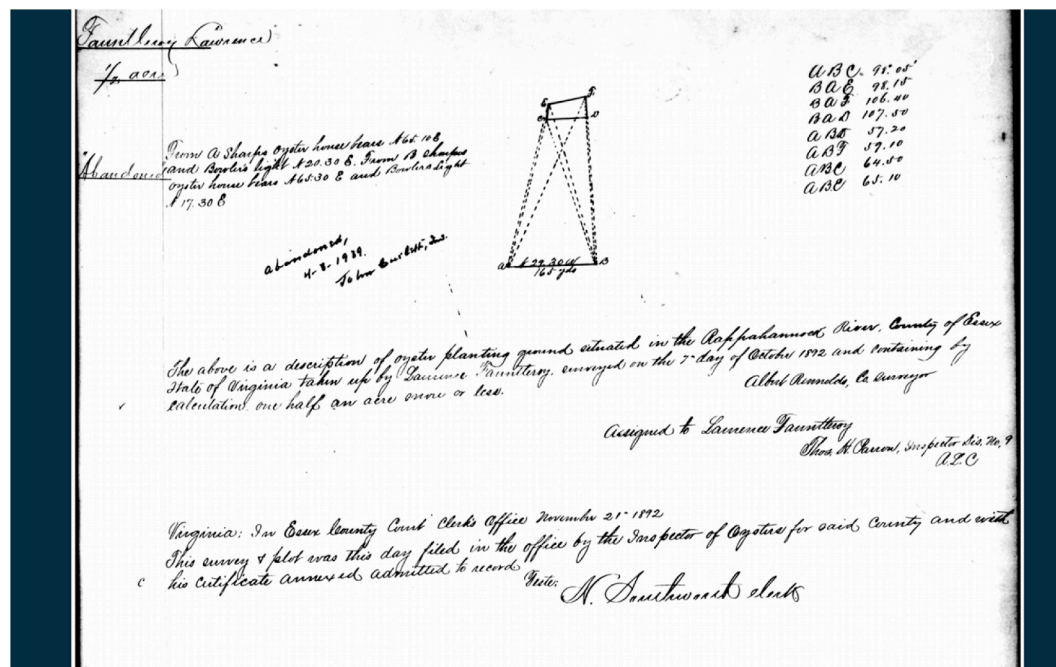 Fauntleroy Lawrence
1/2 acre
"Abandoned"
From A Sharps oyster house bears N 65.10 E
and Bowlers light N 20.30 E. From B Sharps
oyster house bears N 65.30 E and Bowlers Light
N 17.30 E
ABC 98.05
BAE 98.15
BAF 106.40
BAD 107.50
ABD 57.20
ABF 59.10
ABC 64.50
ABE 65.10
E F
C D
A N 29.30 W B
165 yds
Abandoned,
4-8-1939.
John
The above is a description of oyster planting ground situated in the Rappahannock River, County of Essex
State of Virginia taken up by Laurence Fauntleroy, surveyed on the 7th day of October 1892 and containing by
calculation, one half an acre more or less.
Albert Rennolds, Co. Surveyor
Assigned to Lawrence Fauntleroy
Thos. H. Inspector Dis. No. 9
Virginia: In Essex County Court Clerk's Office November 21st 1892
This survey & plot was this day filed in the office by the Inspector of Oysters for said County and with
his certificate annexed admitted to record
Teste:
N. Southworth clerk